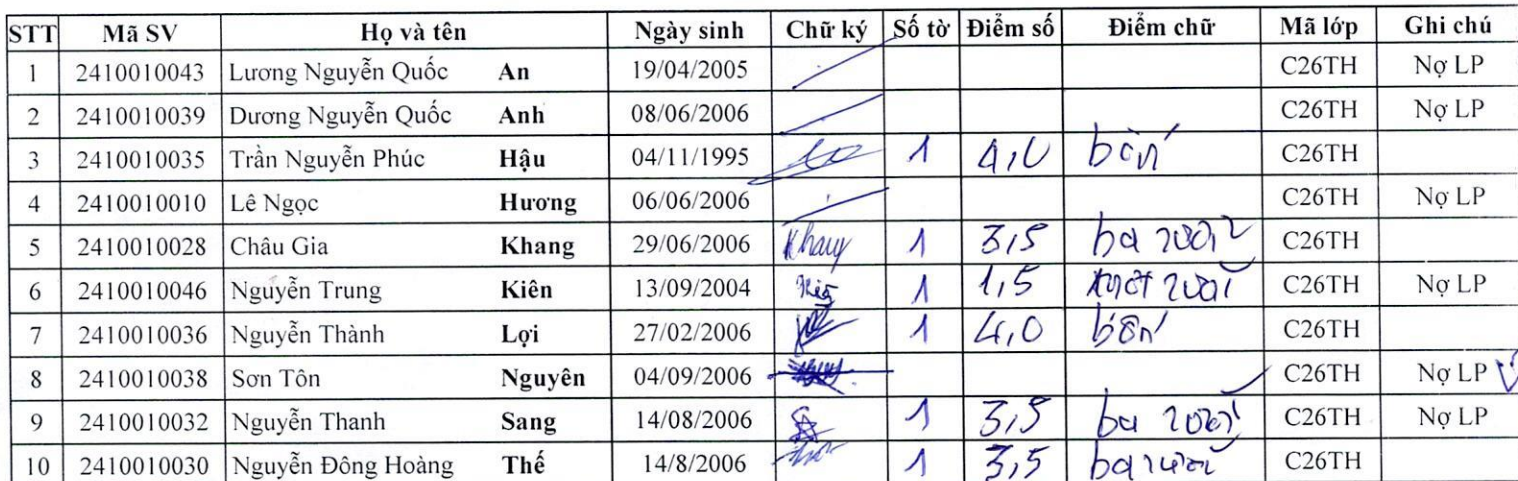 STT Mã SV Họ và tên Ngày sinh Chữ ký Số tờ Điểm số Điểm chữ Mã lớp Ghi chú
1 2410010043 Lương Nguyễn Quốc An 19/04/2005 C26TH Nợ LP
2 2410010039 Dương Nguyễn Quốc Anh 08/06/2006 C26TH Nợ LP
3 2410010035 Trần Nguyễn Phúc Hậu 04/11/1995 1 4,0 bốn C26TH
4 2410010010 Lê Ngọc Hương 06/06/2006 C26TH Nợ LP
5 2410010028 Châu Gia Khang 29/06/2006 Khang 1 3,5 ba rưỡi C26TH
6 2410010046 Nguyễn Trung Kiên 13/09/2004 1 1,5 một rưỡi C26TH Nợ LP
7 2410010036 Nguyễn Thành Lợi 27/02/2006 1 4,0 bốn C26TH
8 2410010038 Sơn Tôn Nguyên 04/09/2006 C26TH Nợ LP
9 2410010032 Nguyễn Thanh Sang 14/08/2006 1 3,5 ba rưỡi C26TH Nợ LP
10 2410010030 Nguyễn Đông Hoàng Thế 14/8/2006 1 3,5 ba rưỡi C26TH